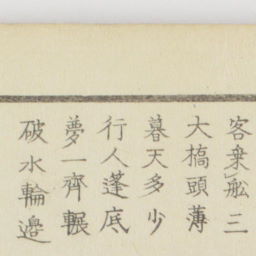 客乗舩三
大橋頭薄
暮天多少
行人蓬底
夢一齊輾
破水輪邊